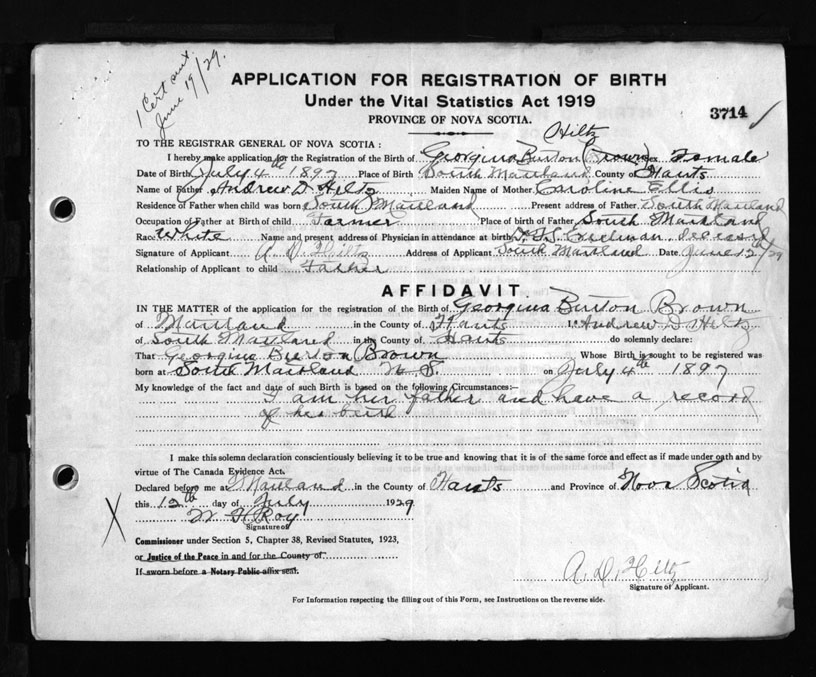 1 Cert sent.
June 19/29.
APPLICATION FOR REGISTRATION OF BIRTH
Under the Vital Statistics Act 1919
PROVINCE OF NOVA SCOTIA.
3714
Hiltz
TO THE REGISTRAR GENERAL OF NOVA SCOTIA :
I hereby make application for the Registration of the Birth of Georgina Burton (Brown) Sex Female
Date of Birth July 4th 1897 Place of Birth South Maitland County of Hants
Name of Father Andrew D. Hiltz Maiden Name of Mother Caroline Ellis
Residence of Father when child was born South Maitland Present address of Father South Maitland
Occupation of Father at Birth of child Farmer Place of birth of Father South Maitland
Race White Name and present address of Physician in attendance at birth
Signature of Applicant A. D. Hiltz Address of Applicant South Maitland Date June 12th/29
Relationship of Applicant to child Father
AFFIDAVIT
IN THE MATTER of the application for the registration of the Birth of Georgina Burton Brown
of Maitland in the County of Hants I, Andrew D. Hiltz
of South Maitland in the County of Hants do solemnly declare:
That Georgina Burton Brown Whose Birth is sought to be registered was
born at South Maitland N. S. on July 4th 1897
My knowledge of the fact and date of such Birth is based on the following Circumstances:—
I am her father and have a record
of her birth
I make this solemn declaration conscientiously believing it to be true and knowing that it is of the same force and effect as if made under oath and by
virtue of The Canada Evidence Act.
Declared before me at Maitland in the County of Hants and Province of Nova Scotia
this 12th day of July 1929
W H Roy
Signature of
X
Commissioner under Section 5, Chapter 38, Revised Statutes, 1923,
or Justice of the Peace in and for the County of
If sworn before a Notary Public affix seal.
A. D. Hiltz
Signature of Applicant.
For Information respecting the filling out of this Form, see Instructions on the reverse side.